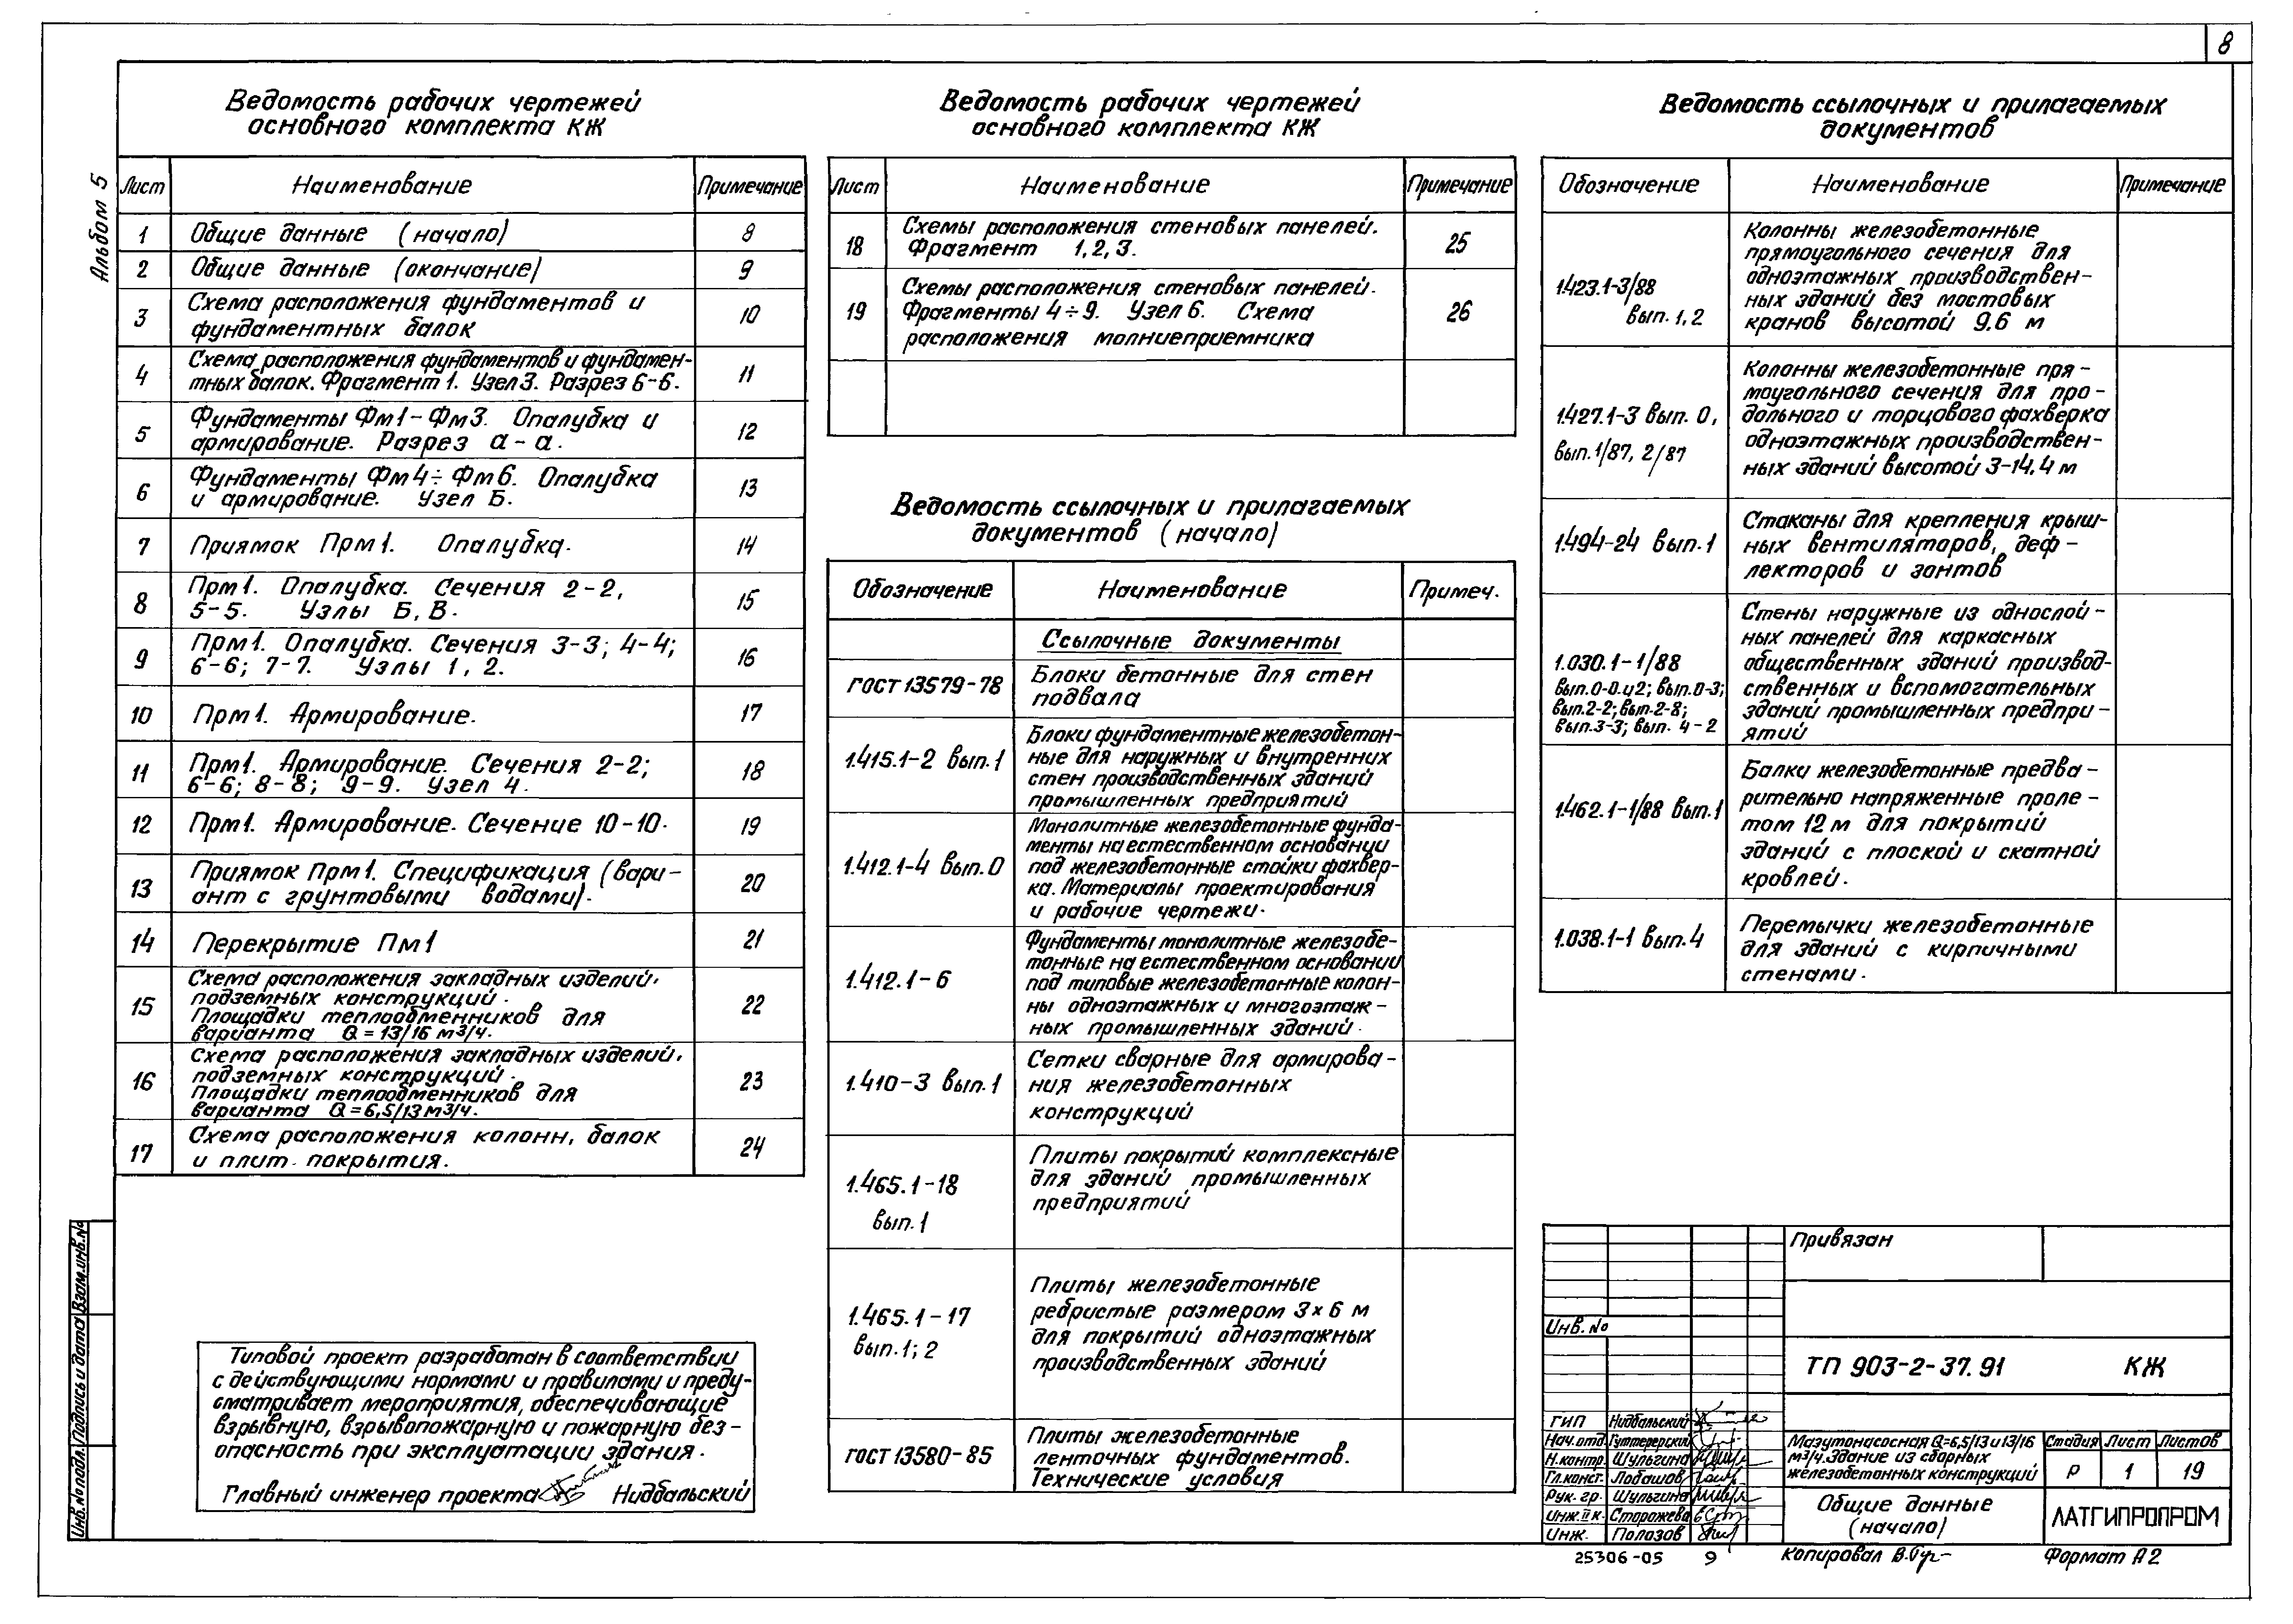 8
Альбом 5
Ведомость рабочих чертежей
основного комплекта КЖ
Лист Наименование Примечание
1 Общие данные (начало) 8
2 Общие данные (окончание) 9
3 Схема расположения фундаментов и
фундаментных балок 10
4 Схема расположения фундаментов и фундамен-
тных балок. Фрагмент 1. Узел 3. Разрез 6-6. 11
5 Фундаменты Фм1-Фм3. Опалубка и
армирование. Разрез а-а. 12
6 Фундаменты Фм4÷Фм6. Опалубка
и армирование. Узел Б. 13
7 Приямок Прм1. Опалубка. 14
8 Прм1. Опалубка. Сечения 2-2,
5-5. Узлы Б, В. 15
9 Прм1. Опалубка. Сечения 3-3; 4-4;
6-6; 7-7. Узлы 1, 2. 16
10 Прм1. Армирование. 17
11 Прм1. Армирование. Сечения 2-2;
6-6; 8-8; 9-9. Узел 4. 18
12 Прм1. Армирование. Сечение 10-10. 19
13 Приямок Прм1. Спецификация (вари-
ант с грунтовыми водами). 20
14 Перекрытие Пм1 21
15 Схема расположения закладных изделий.
подземных конструкций.
Площадки теплообменников для
варианта Q=13/16 м3/ч. 22
16 Схема расположения закладных изделий.
подземных конструкций.
Площадки теплообменников для
варианта Q=6,5/13 м3/ч. 23
17 Схема расположения колонн, балок
и плит покрытия. 24
Типовой проект разработан в соответствии
с действующими нормами и правилами и преду-
сматривает мероприятия, обеспечивающие
взрывную, взрывопожарную и пожарную без-
опасность при эксплуатации здания.
Главный инженер проекта Нидбальский
Ведомость рабочих чертежей
основного комплекта КЖ
Лист Наименование Примечание
18 Схемы расположения стеновых панелей.
Фрагмент 1, 2, 3. 25
19 Схемы расположения стеновых панелей.
Фрагменты 4÷9. Узел 6. Схема
расположения молниеприемника 26
Ведомость ссылочных и прилагаемых
документов (начало)
Обозначение Наименование Примеч.
Ссылочные документы
ГОСТ 13579-78 Блоки бетонные для стен
подвала
1.415.1-2 вып.1 Блоки фундаментные железобетон-
ные для наружных и внутренних
стен производственных зданий
промышленных предприятий
1.412.1-4 вып.0 Монолитные железобетонные фунда-
менты на естественном основании
под железобетонные стойки фахвер-
ка. Материалы проектирования
и рабочие чертежи.
1.412.1-6 Фундаменты монолитные железобе-
тонные на естественном основании
под типовые железобетонные колон-
ны одноэтажных и многоэтаж-
ных промышленных зданий.
1.410-3 вып.1 Сетки сварные для армирова-
ния железобетонных
конструкций
1.465.1-18
вып.1 Плиты покрытий комплексные
для зданий промышленных
предприятий
1.465.1-17
вып.1; 2 Плиты железобетонные
ребристые размером 3×6 м
для покрытий одноэтажных
производственных зданий
ГОСТ 13580-85 Плиты железобетонные
ленточных фундаментов.
Технические условия
Ведомость ссылочных и прилагаемых
документов
Обозначение Наименование Примечание
1.423.1-3/88
вып. 1, 2 Колонны железобетонные
прямоугольного сечения для
одноэтажных производствен-
ных зданий без мостовых
кранов высотой 9.6 м
1.427.1-3 вып. 0,
вып.1/87, 2/87 Колонны железобетонные пря-
моугольного сечения для про-
дольного и торцового фахверка
одноэтажных производствен-
ных зданий высотой 3-14,4 м
1.494-24 вып.1 Стаканы для крепления крыш-
ных вентиляторов, деф-
лекторов и зонтов
1.030.1-1/88
вып.0-0 и 2; вып.0-3;
вып.2-2; вып.2-8;
вып.3-3; вып. 4-2 Стены наружные из однослой-
ных панелей для каркасных
общественных зданий производ-
ственных и вспомогательных
зданий промышленных предпри-
ятий
1.462.1-1/88 вып.1 Балки железобетонные предва-
рительно напряженные проле-
том 12 м для покрытий
зданий с плоской и скатной
кровлей.
1.038.1-1 вып.4 Перемычки железобетонные
для зданий с кирпичными
стенами.
Привязан
Инв. №
ТП 903-2-37.91 КЖ
ГИП Нидбальский
Нач.отд. Гуттерерский
Н.контр. Шульгина
Гл.конст. Лобашов
Рук. гр. Шульгина
Инж.II к. Сторожева
Инж. Полозов
Мазутонасосная Q=6,5/13 и 13/16
м3/ч. Здание из сборных
железобетонных конструкций
Стадия Лист Листов
Р 1 19
Общие данные
(начало)
ЛАТГИПРОПРОМ
25306-05 9 Копировал Формат А2
Инв.№ подл. Подпись и дата Взам.инв.№